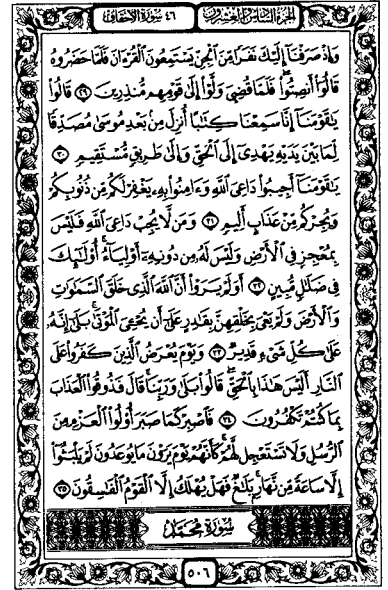 الجزء السادس والعشرون ٤٦ سورة الأحقاف
وَإِذْ صَرَفْنَا إِلَيْكَ نَفَرًا مِّنَ الْجِنِّ يَسْتَمِعُونَ الْقُرْءَانَ فَلَمَّا حَضَرُوهُ
قَالُوا أَنصِتُوا فَلَمَّا قُضِيَ وَلَّوْا إِلَىٰ قَوْمِهِم مُّنذِرِينَ ٢٩ قَالُوا
يَٰقَوْمَنَا إِنَّا سَمِعْنَا كِتَٰبًا أُنزِلَ مِنۢ بَعْدِ مُوسَىٰ مُصَدِّقًا
لِّمَا بَيْنَ يَدَيْهِ يَهْدِي إِلَى الْحَقِّ وَإِلَىٰ طَرِيقٍ مُّسْتَقِيمٍ ٣٠
يَٰقَوْمَنَا أَجِيبُوا دَاعِيَ اللَّهِ وَءَامِنُوا بِهِ يَغْفِرْ لَكُم مِّن ذُنُوبِكُمْ
وَيُجِرْكُم مِّنْ عَذَابٍ أَلِيمٍ ٣١ وَمَن لَّا يُجِبْ دَاعِيَ اللَّهِ فَلَيْسَ
بِمُعْجِزٍ فِي الْأَرْضِ وَلَيْسَ لَهُ مِن دُونِهِ أَوْلِيَاءُ أُولَٰئِكَ
فِي ضَلَٰلٍ مُّبِينٍ ٣٢ أَوَلَمْ يَرَوْا أَنَّ اللَّهَ الَّذِي خَلَقَ السَّمَٰوَٰتِ
وَالْأَرْضَ وَلَمْ يَعْيَ بِخَلْقِهِنَّ بِقَٰدِرٍ عَلَىٰ أَن يُحْـِۧيَ الْمَوْتَىٰ بَلَىٰ إِنَّهُ
عَلَىٰ كُلِّ شَيْءٍ قَدِيرٌ ٣٣ وَيَوْمَ يُعْرَضُ الَّذِينَ كَفَرُوا عَلَى
النَّارِ أَلَيْسَ هَٰذَا بِالْحَقِّ قَالُوا بَلَىٰ وَرَبِّنَا قَالَ فَذُوقُوا الْعَذَابَ
بِمَا كُنتُمْ تَكْفُرُونَ ٣٤ فَاصْبِرْ كَمَا صَبَرَ أُولُوا الْعَزْمِ مِنَ
الرُّسُلِ وَلَا تَسْتَعْجِل لَّهُمْ كَأَنَّهُمْ يَوْمَ يَرَوْنَ مَا يُوعَدُونَ لَمْ يَلْبَثُوا
إِلَّا سَاعَةً مِّن نَّهَارٍ بَلَٰغٌ فَهَلْ يُهْلَكُ إِلَّا الْقَوْمُ الْفَٰسِقُونَ ٣٥
سورة محمد
٥٠٦